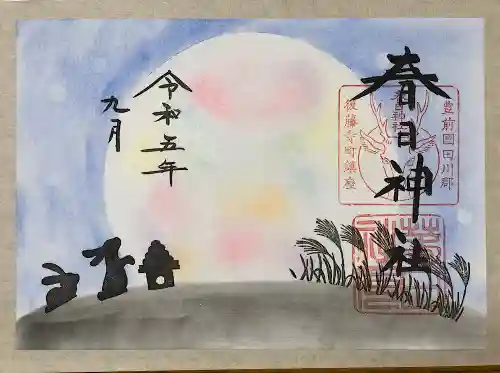 春日神社
豊前國田川郡
春日神社
後藤寺町鎮座
令和五年
九月